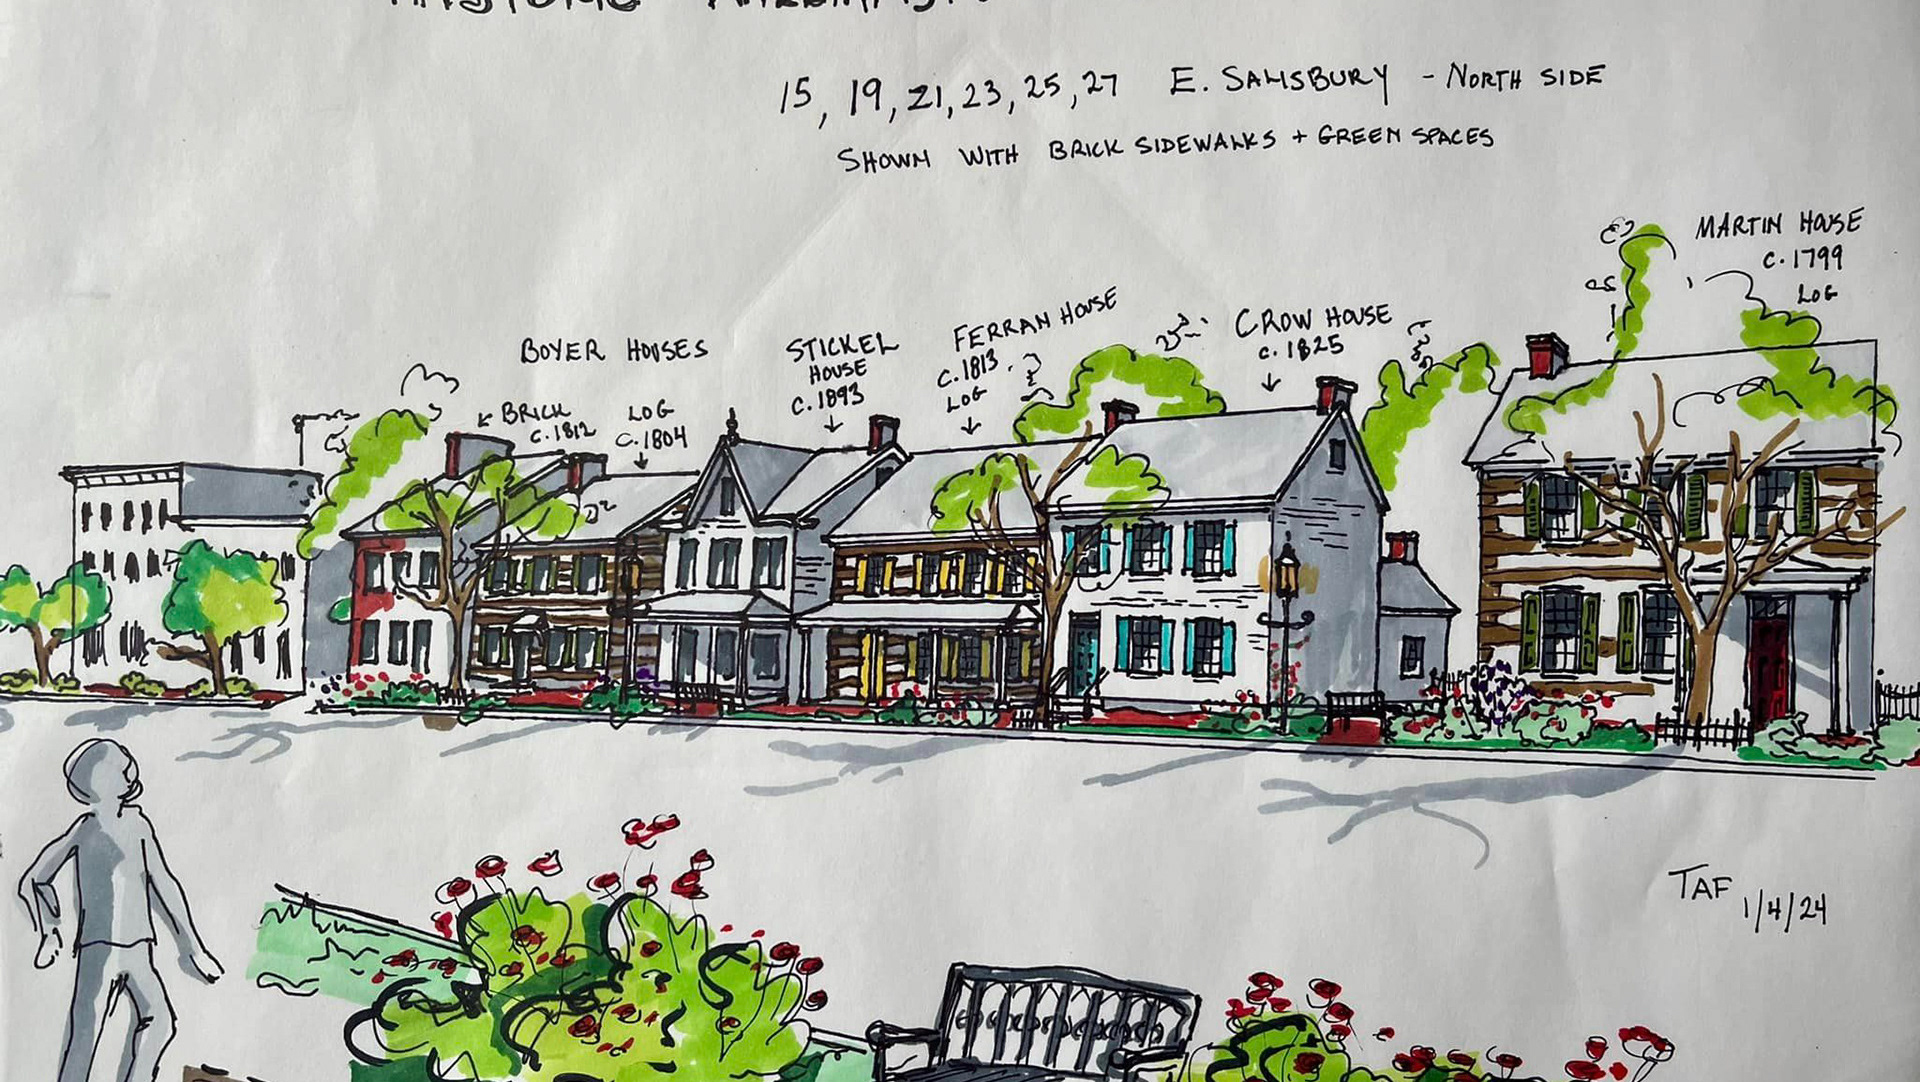 15, 19, 21, 23, 25, 27 E. SALISBURY - NORTH SIDE
SHOWN WITH BRICK SIDEWALKS + GREEN SPACES
MARTIN HOUSE
c. 1799
LOG
CROW HOUSE
c. 1825
FERRAN HOUSE
c. 1813
LOG
STICKEL
HOUSE
c. 1893
BOYER HOUSES
BRICK
c. 1812
LOG
c. 1804
TAF 1/4/24